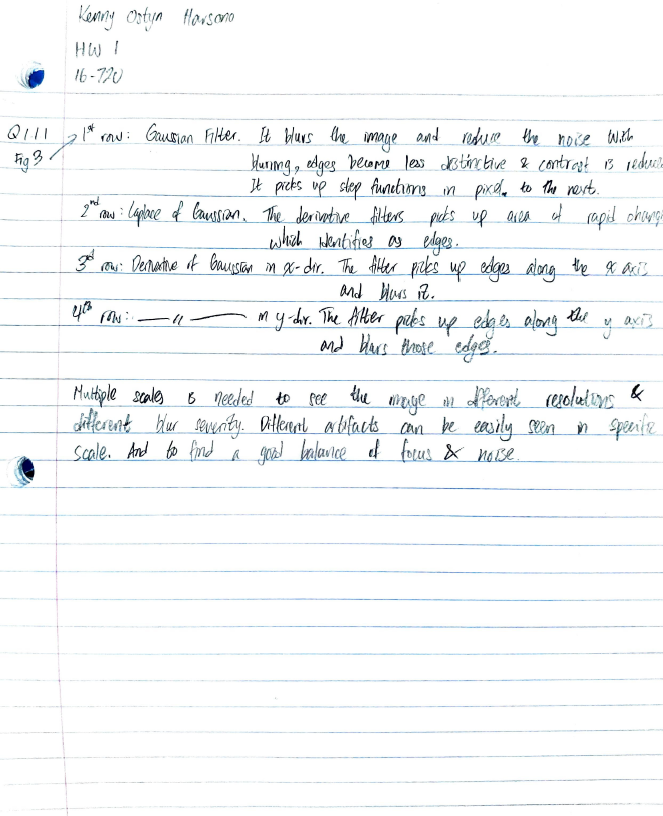 Kenny Ostyn Harsono
HW 1
16-720
Q1.1.1 1st row: Gaussian Filter. It blurs the image and reduce the noise With
Fig 3 blurring, edges become less distinctive & contrast is reduce
It picks up step functions in pixel to the next.
2nd row: Laplace of Gaussian. The derivative filters picks up area of rapid change
which identifies as edges.
3rd row: Derivative of Gaussian in x-dir. The filter picks up edges along the x axis
and blurs it.
4th row: — 〃 — in y-dir. The filter picks up edges along the y axis
and blurs those edges.
Multiple scales is needed to see the image in different resolutions &
different blur severity. Different artifacts can be easily seen in specific
scale. And to find a good balance of focus & noise.